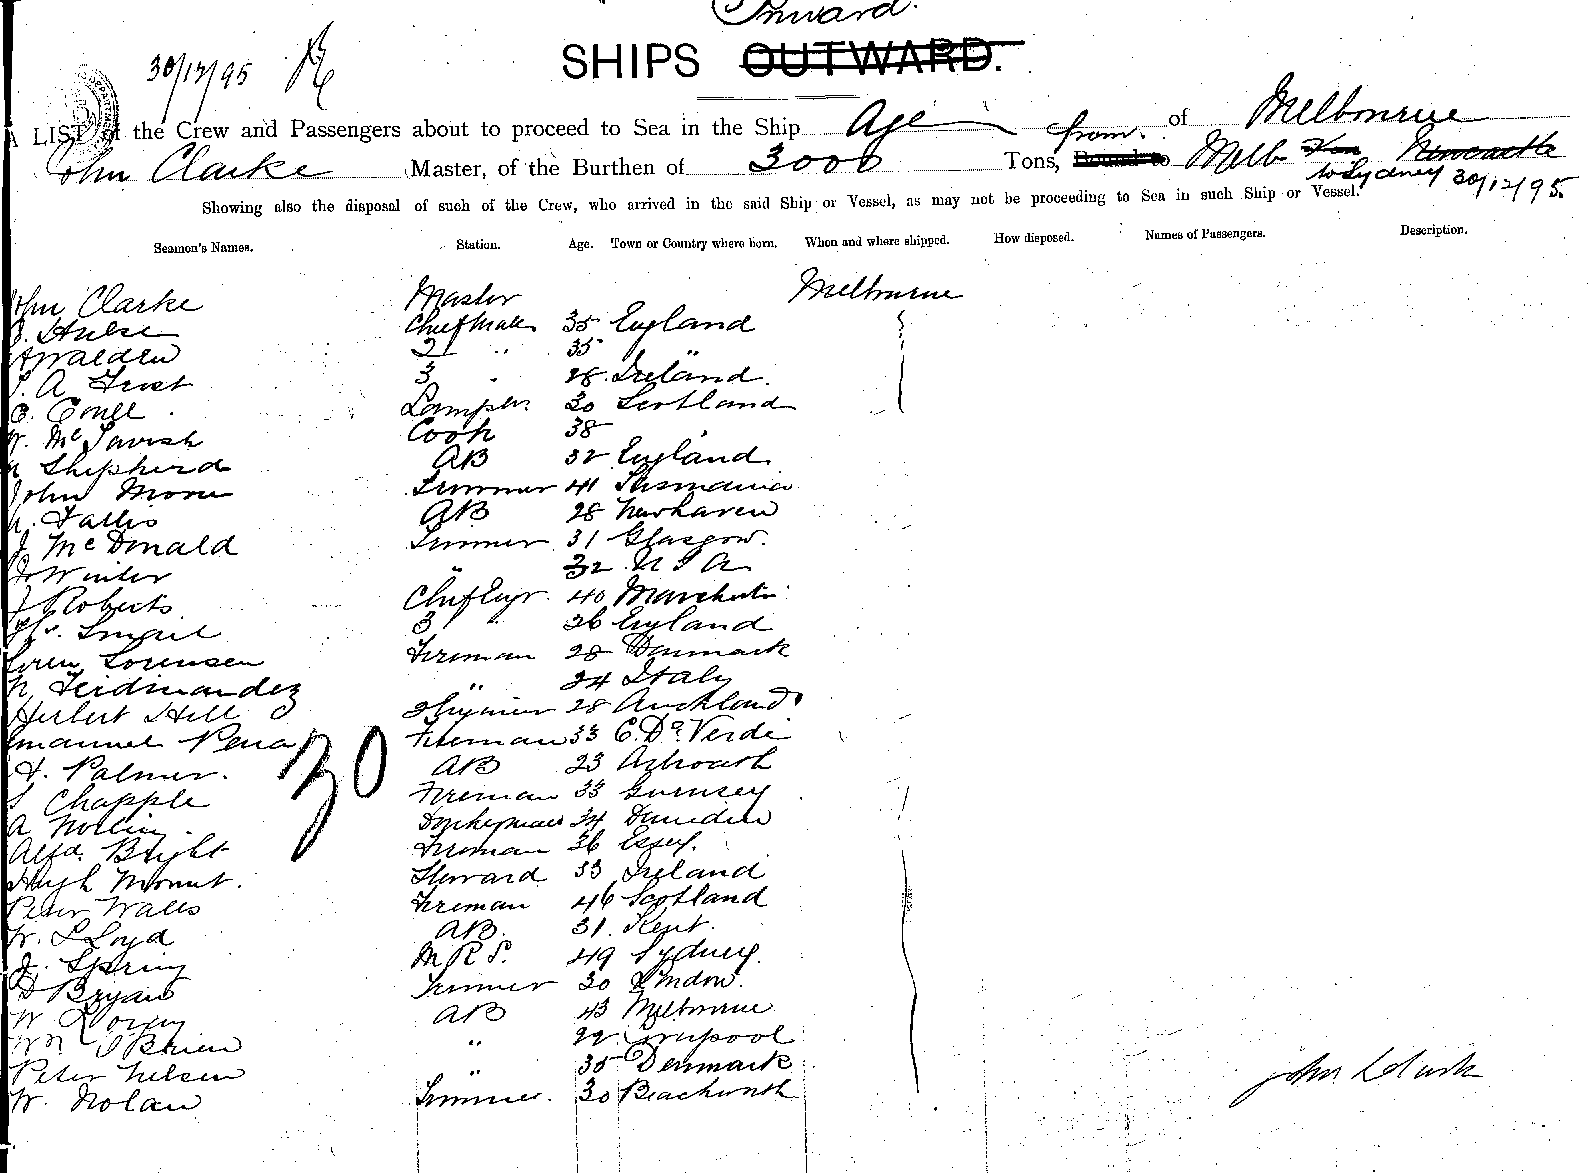 Inward.
SHIPS OUTWARD.
30/12/95
A LIST of the Crew and Passengers about to proceed to Sea in the Ship Age from. of Melbourne
John Clarke Master, of the Burthen of 3000 Tons, Bound to Melb Newcastle
to Sydney 30/12/95.
Showing also the disposal of such of the Crew, who arrived in the said Ship or Vessel, as may not be proceeding to Sea in such Ship or Vessel.
Seamen's Names. Station. Age. Town or Country where born. When and where shipped. How disposed. Names of Passengers. Description.
John Clarke Master Melbourne
Hulse Chief Mate 35 England
Walden 2 " 35 "
A Frost 3 " 28 Ireland.
Coull Lamps. 30 Scotland
W. McTavish Cook 38 "
Shepherd AB 32 England
John Moore Trimmer 41 Tasmania
Fallis AB 28 Newhaven
J. McDonald Trimmer 31 Glasgow.
J Winter " 32 U S A
J Roberts Chief Engr. 40 Manchester
Smail 3 26 England
Soren Sorensen Fireman 28 Denmark
N Ferdinandez " 24 Italy
Herbert Hill Trimmer 28 Auckland
Emanuel Pena Fireman 33 C. De Verde
H. Palmer. AB 23 Arbroath
Chapple Fireman 33 Guernsey
A Donkeyman 34 Dunedin
Alfd. Bright Fireman 36 Essex.
Hugh Mount. Steward 33 Ireland
Peter Walls Fireman 46 Scotland
W. Lloyd AB. 31. Kent.
J. Spring M R S. 49 Sydney.
Bryan Trimmer 30 London.
W AB 43 Melbourne
Wm O'Brien " 22 Liverpool
Peter Nelsen " 35 Denmark
W. Nolan Trimmer. 30 Beachworth
30
John Clark